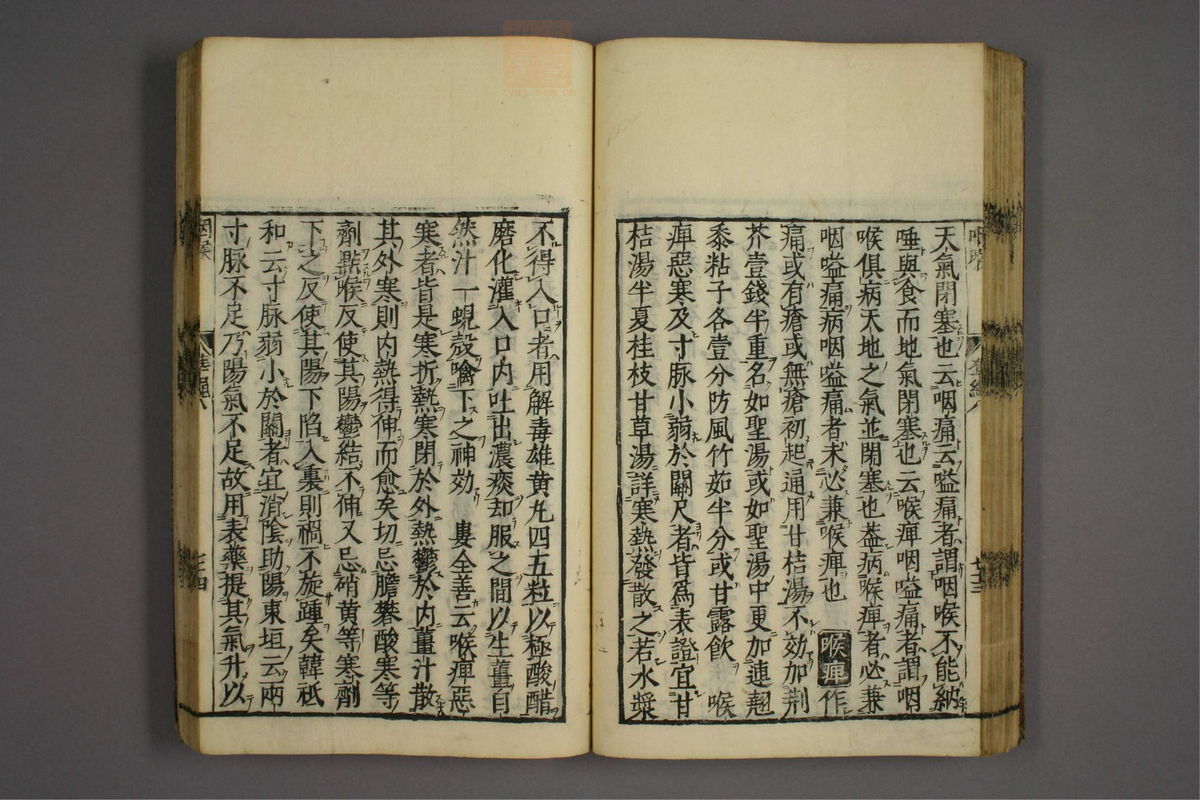 天氣閉塞也云咽痛云嗌痛者謂咽喉不能納
唾與食而地氣閉塞也云喉痺咽嗌痛者謂咽
喉俱病天地之氣並閉塞也蓋病喉痺者必兼
咽嗌痛病咽嗌痛者未必兼喉痺也 喉痺作
痛或有瘡或無瘡初起通用甘桔湯不効加荆
芥壹錢半重名如聖湯或如聖湯中更加連翹
黍粘子各壹分防風竹茹半分或甘露飲 喉
痺惡寒及寸脉小弱於關尺者皆爲表證宜甘
桔湯半夏桂枝甘草湯詳寒熱發散之若水漿
不得入口者用解毒雄黄丸四五粒以極酸醋
磨化灌入口内吐出濃痰却服之間以生薑自
然汁一蜆殼噙下之神効 婁全善云喉痺惡
寒者皆是寒折熱寒閉於外熱鬱於内薑汁散
其外寒則内熱得伸而愈矣切忌膽礬酸寒等
劑㸃喉反使其陽鬱結不伸又忌硝黄等寒劑
下之反使其陽下陷入裏則禍不旋踵矣韓祗
和云寸脉弱小於關者宜消陰助陽東垣云兩
寸脉不足乃陽氣不足故用表藥提其氣升以
咽喉
八
七十四